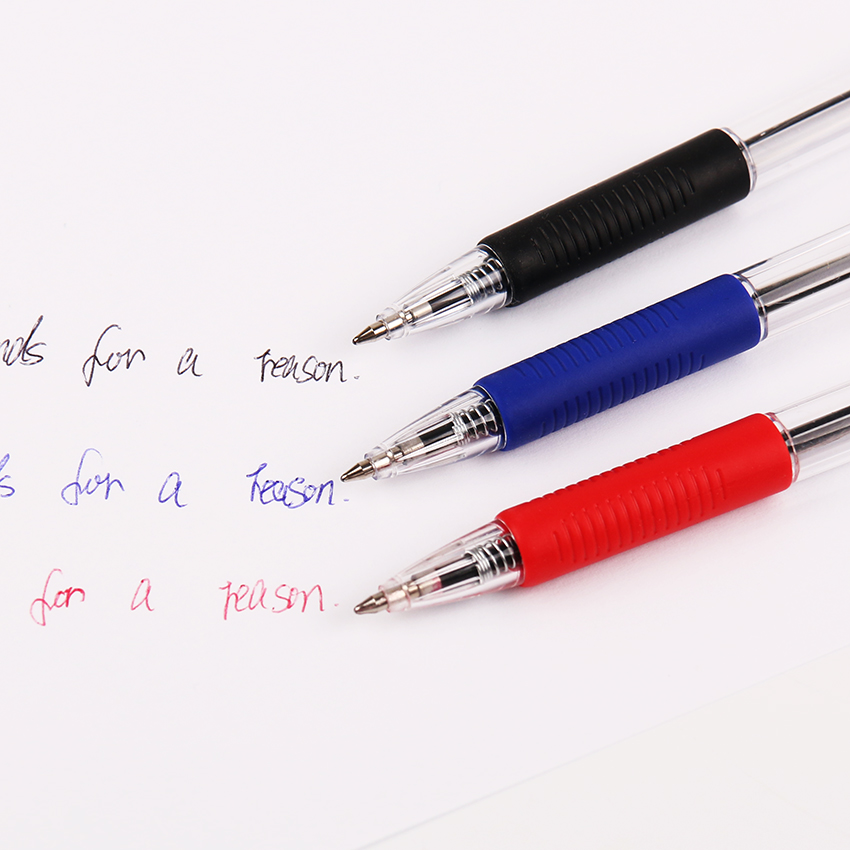 for a reason.
for a reason.
for a reason.